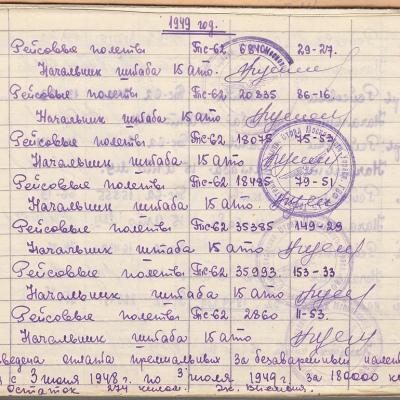 1949 год.
Рейсовые полеты Пс-62 6840 29-27.
Начальник штаба 15 ато.
Рейсовые полеты Пс-62 20335 86-16.
Начальник штаба 15 ато.
Рейсовые полеты Пс-62 18075 75-53
Начальник штаба 15 ато
Рейсовые полеты Пс-62 18495 79-51
Начальник штаба 15 ато
Рейсовые полеты Пс-62 35385 149-29
Начальник штаба 15 ато
Рейсовые полеты Пс-62 35993 153-33
Начальник штаба 15 ато
Рейсовые полеты Пс-62 2860 11-53.
Начальник штаба 15 ато
ведена оплата премиальных за безаварийный налет
с 3 июня 1948 г. по 3 июля 1949 г. за 180000 к
Остаток 274 килом.